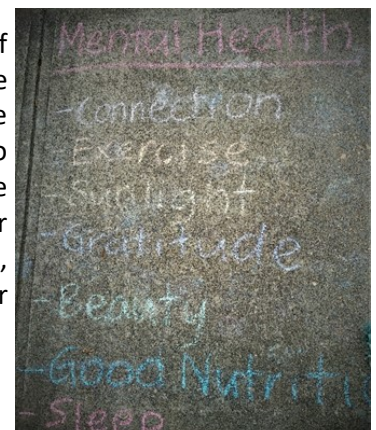 f
e
e
o
e
r
,
r
Mental Health
- Connection
- Exercise
- Sunlight
- Gratitude
- Beauty
- Good Nutriti
- Sleep